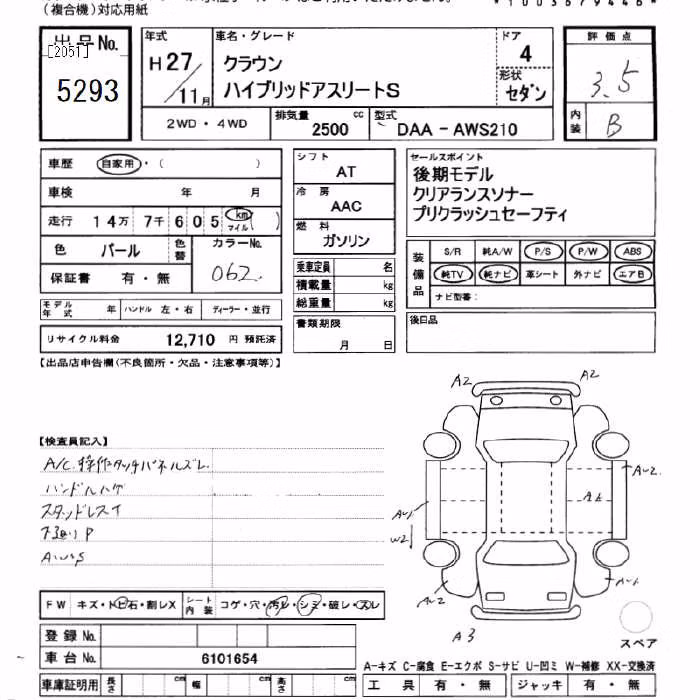 （複合機）対応用紙
出品No.
[2051]
5293
年式
H27/11月
車名・グレード
クラウン
ハイブリッドアスリートS
ドア
4
形状
セダン
評価点
3.5
内装
B
2WD・4WD
排気量
2500 cc
型式
DAA - AWS210
車歴 自家用・( )
車検 年 月
走行 14万 7千 605 km マイル ( )
色 パール 色替
カラーNo.
062
保証書 有・無
モデル年式 年 ハンドル 左・右 ディーラー・並行
リサイクル料金 12,710 円 預託済
シフト
AT
冷房
AAC
燃料
ガソリン
乗車定員 名
積載量 kg
総重量 kg
書類期限
月 日
セールスポイント
後期モデル
クリアランスソナー
プリクラッシュセーフティ
装備品
S/R 純A/W P/S P/W ABS
純TV 純ナビ 革シート 外ナビ エアB
ナビ型番：
後日品
【出品店申告欄(不良箇所・欠品・注意事項等)】
【検査員記入】
A/C 操作タッチパネルズレ
ハンドルハゲ
スタッドレス
下廻りP
A2 A2
AU2
A1
AU1
W2
AU2
AU1
A3
スペア
FW キズ・トビ石・割レX シート内装 コゲ・穴・汚レ・シミ・破レ・スレ
登録No.
車台No. 6101654
車庫証明用 長さ cm 幅 cm 高さ cm
A-キズ C-腐食 E-エクボ S-サビ U-凹ミ W-補修 XX-交換済
工具 有・無 ジャッキ 有・無